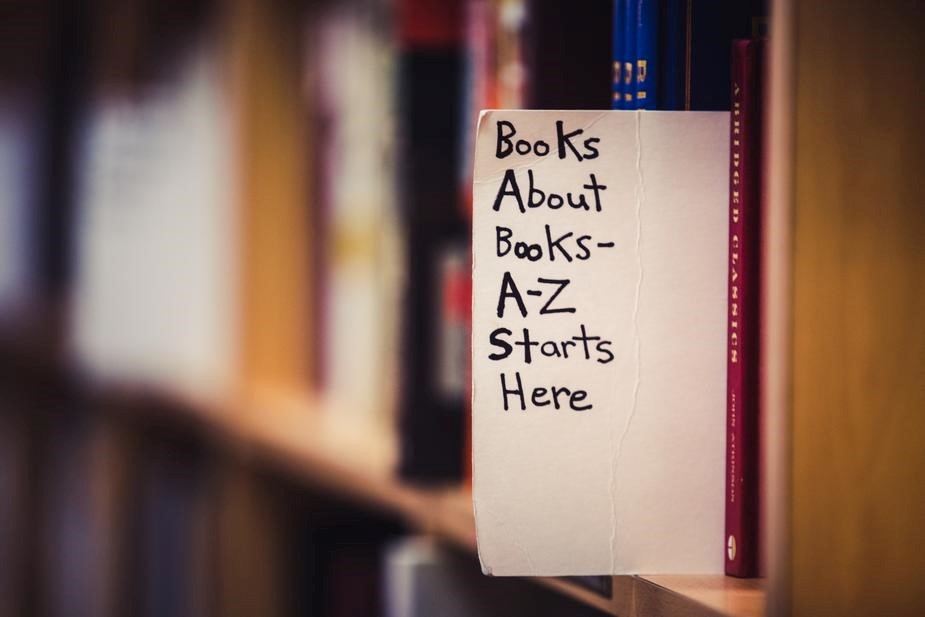 Books
About
Books-
A-Z
Starts
Here
ABRIDGED CLASSICS
JOHN ATKINSON